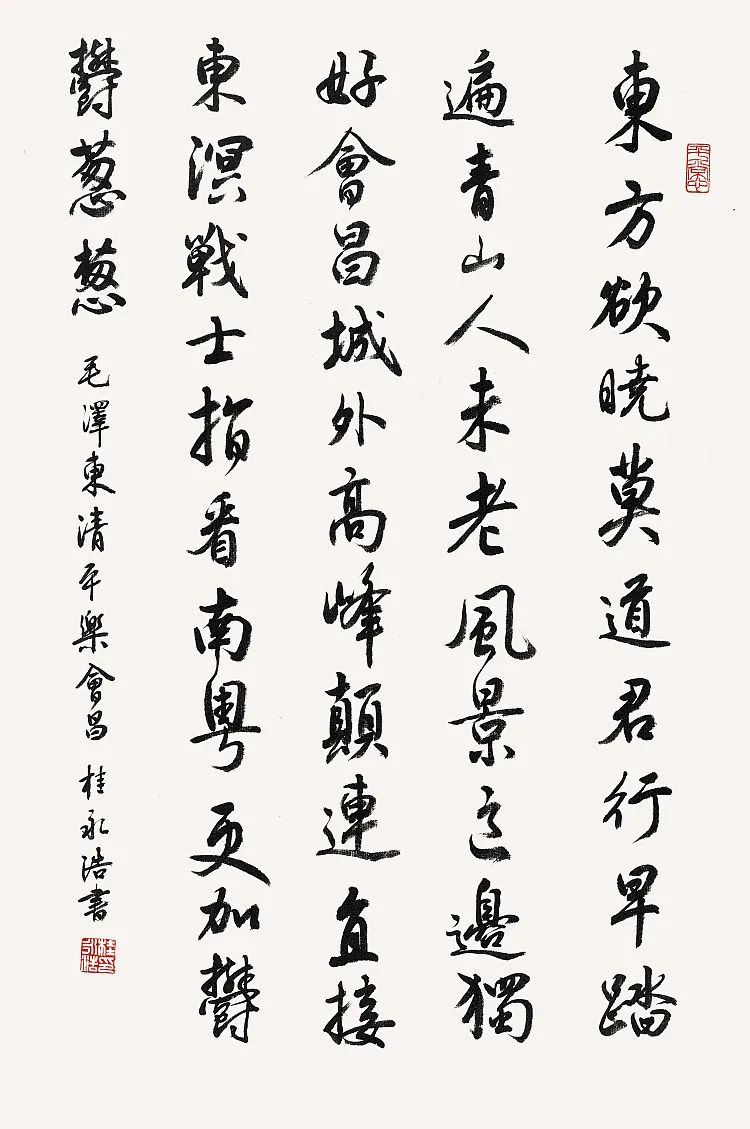 東方欲曉莫道君行早踏
遍青山人未老風景這邊獨
好會昌城外高峰顛連直接
東溟戰士指看南粵更加鬱
鬱葱葱 毛澤東清平樂會昌 桂永浩書